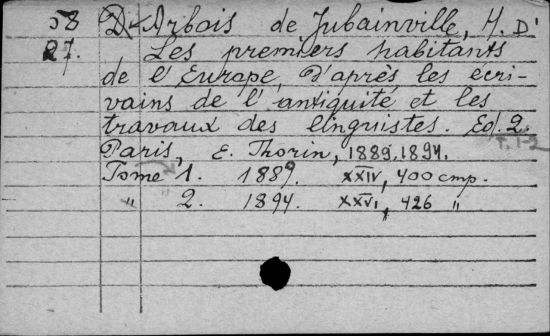 58 D'Arbois de Jubainville, H. D'
27. Les premiers habitants
de l'Europe, d'après les écri-
vains de l'antiquité et les
travaux des linguistes. Ed. 2.
Paris, E. Thorin, 1889, 1894. T. 1-2
Tome 1. 1889. XXIV, 400 стр.
" 2. 1894. XXVI, 426 "